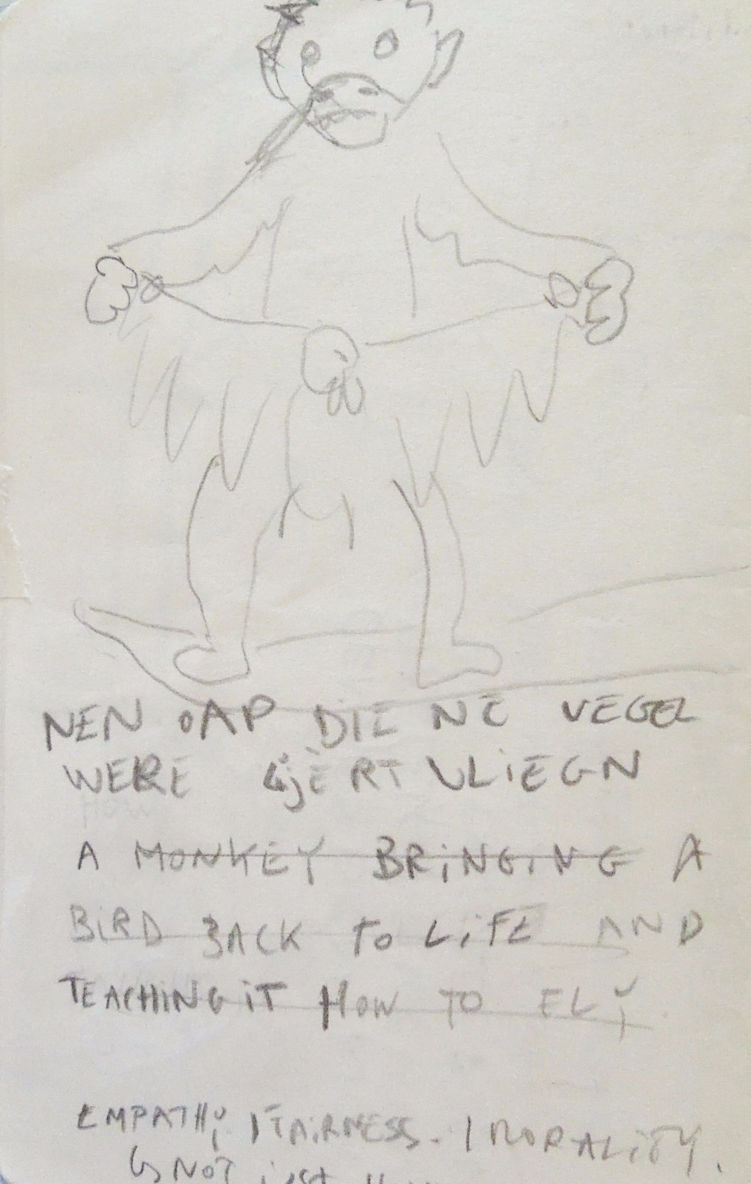 NEN OAP DIE NE VEGEL
WERE LIJERT VLIEGN
A MONKEY BRINGING A
BIRD BACK TO LIFE AND
TEACHING IT HOW TO FLY
EMPATHY, FAIRNESS. MORALITY.
IS NOT just